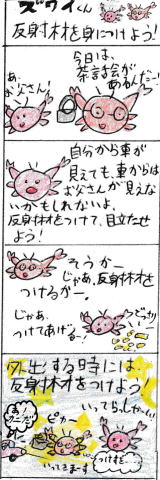 ズワイくん
反射材を身につけよう!
今日は、
茶話会が
あるんだ〜
あ、
お父さん!
自分から車が
見えても、車からは
お父さんが見えな
いかもしれないよ。
反射材をつけて、目立たせ
よう!
そうかー
じゃあ、反射材を
つけるかー。
じゃあ、
つけてあげ
るー!
外出する時には、
反射材をつけよう!
いってらっしゃ〜い
あ!
カニだ!
いってきま〜す